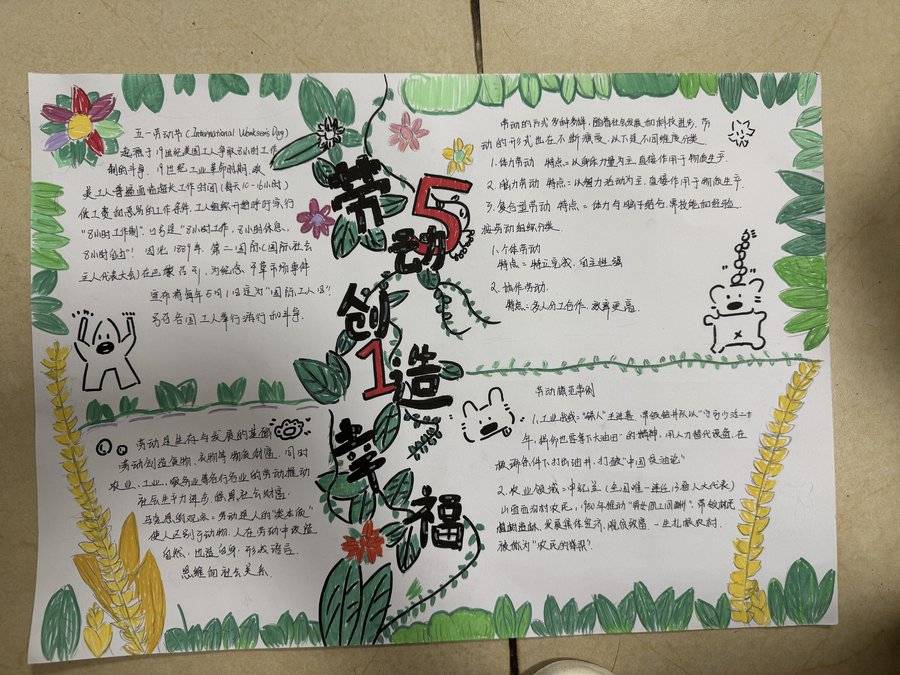 五一劳动节(International Workers's Day)
起源于19世纪美国工人争取8小时工作
制的斗争. 19世纪工业革命时期,欧
美工人普遍面临超长工作时间(每天10-16小时)
低工资和恶劣的工作条件.工人组织开始呼吁实行
"8小时工作制",口号是"8小时工作,8小时休息,
8小时自由". 因此1889年 第二国际(国际社会
主义代表大会)在巴黎召开,为纪念 干草市场事件
宣布将每年5月1日定为"国际工人日".
号召各国工人举行游行和斗争.
劳动创造幸福
51
劳动的形式多种多样,随着社会发展和科技进步,劳
动的形式也在不断演变,以下是不同维度分类
1.体力劳动 特点=以身体力量为主,直接作用于物质生产.
2.脑力劳动 特点=以智力活动为主,直接作用于物质生产.
3.复合型劳动 特点=体力与脑子结合,需技能和经验.
按劳动组织分类
1.个体劳动
特点=独立完成,自主性强
2.协作劳动.
特点=多人分工合作,效率更高.
劳动是生存与发展的基础
劳动创造食物、衣物等物质财富.同时
农业、工业、服务业等各行各业的劳动推动
社会生产力进步,积累社会财富.
马克思的观点=劳动是人的"类本质"
使人区别于动物.人在劳动中改造
自然,也造自身,形成语言.
思维和社会关系.
劳动模范案例
1.工业战线="铁人"王进喜 带领钻井队以"宁可少活二十
年,拼命也要拿下大油田"的精神,用人力替代设备,在
极端条件下打出油井,打破"中国贫油论"
2.农业领域=申纪兰(全国唯一连任13届人大代表)
山西西沟村农民,1950年推动"男女同工同酬",带领村民
植树造林、发展集体经济,脱贫致富,一生扎根农村.
被称为"农民的脊梁".